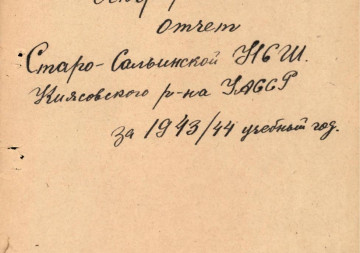 отчет
Старо-Сальинской НСШ.
Киясовского р-на УАССР
за 1943/44 учебный год.